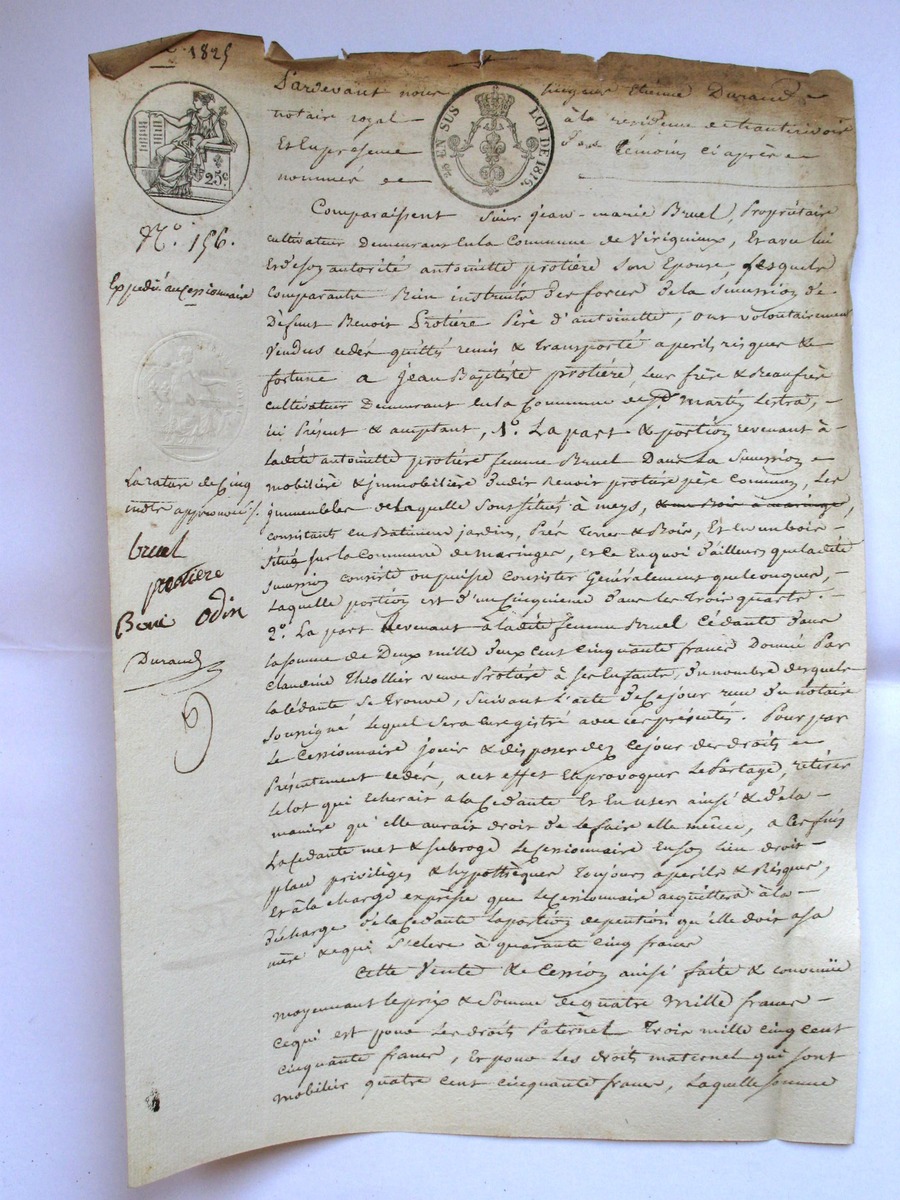 1825
Pardevant nous Etienne Durand
notaire royal à la résidence de
Et en présence des témoins ci après
nommés
EN SUS LOI DE 1816.
25c
No. 156.
Expédié au cessionnaire
La rature de cinq
mots approuvée
bruel
protière
Odin
Durand
Comparaissent Sieur jean-marie Bruel, Propriétaire
cultivateur Demeurant En la Commune de Virigneux, Et avec lui
Et de son autorité antoinette protière Son Epouse, lesquels
Comparants Bien instruits des forces de la Succession de
Défunt Benoit Protière Père d'antoinette, ont volontairement
Vendus cédés quittés remis & Transporté a perils risques &
fortune a jean Baptiste protière, leur frère & Beaufrère
cultivateur Demeurant En la Commune de St Martin Lestra,
ici Présent & acceptant, 1o. La part & portion revenant à
ladite antoinette protière femme Bruel Dans La Succession
mobilière & jmmobilière dudit Benoit protière père commun, Les
jmmeubles de laquelle sont Situés à meys, & un Bois à maringe,
consistant en Batiments jardin, Prés Terres & Bois, Et en un bois
Situé sur la Commune de maringes, et Ce En quoi d'ailleurs que ladite
Succession consiste ou puisse Consister Généralement quelconques,
Laquelle portion est d'un cinquieme dans les Trois quarts.
2o. La part Revenant à ladite femme Bruel Cédante dans
la somme de Deux mille deux cent cinquante francs Donné Par
Claudine Théollier veuve Protière à Ses Enfants, du nombre desquels
la Cédante Se Trouve, Suivant L'acte de Ce jour reçu du notaire
Soussigné Lequel Sera Enregistré avec ces présentes. Pour par
Le Cessionnaire jouir & disposer dez Ce jour des droits
Présentement cédés, a cet effet En provoquer Le Partage, retirer
le lot qui Echerait a la Cédante Et En user ainsi & de la
manière qu'elle aurait droit de le faire elle même, a Ces fins
La Cédante met & subroge Le Cessionnaire En son lieu droit
place privilèges & hypothèques Toujours a perils & Risques,
Et à la charge expresse que le Cessionnaire acquittera à la
décharge de la Cedante la portion de pention qu'elle doit a sa
mère & qui S'elève à quarante Cinq francs
Cette Vente & Cession ainsi faite & convenüe
moyennant le prix & Somme de quatre Mille francs
ce qui est pour Les droits Paternel Trois mille cinq cent
cinquante francs, Et pour Les droits maternel qui sont
mobilier quatre cent cinquante francs, Laquelle somme